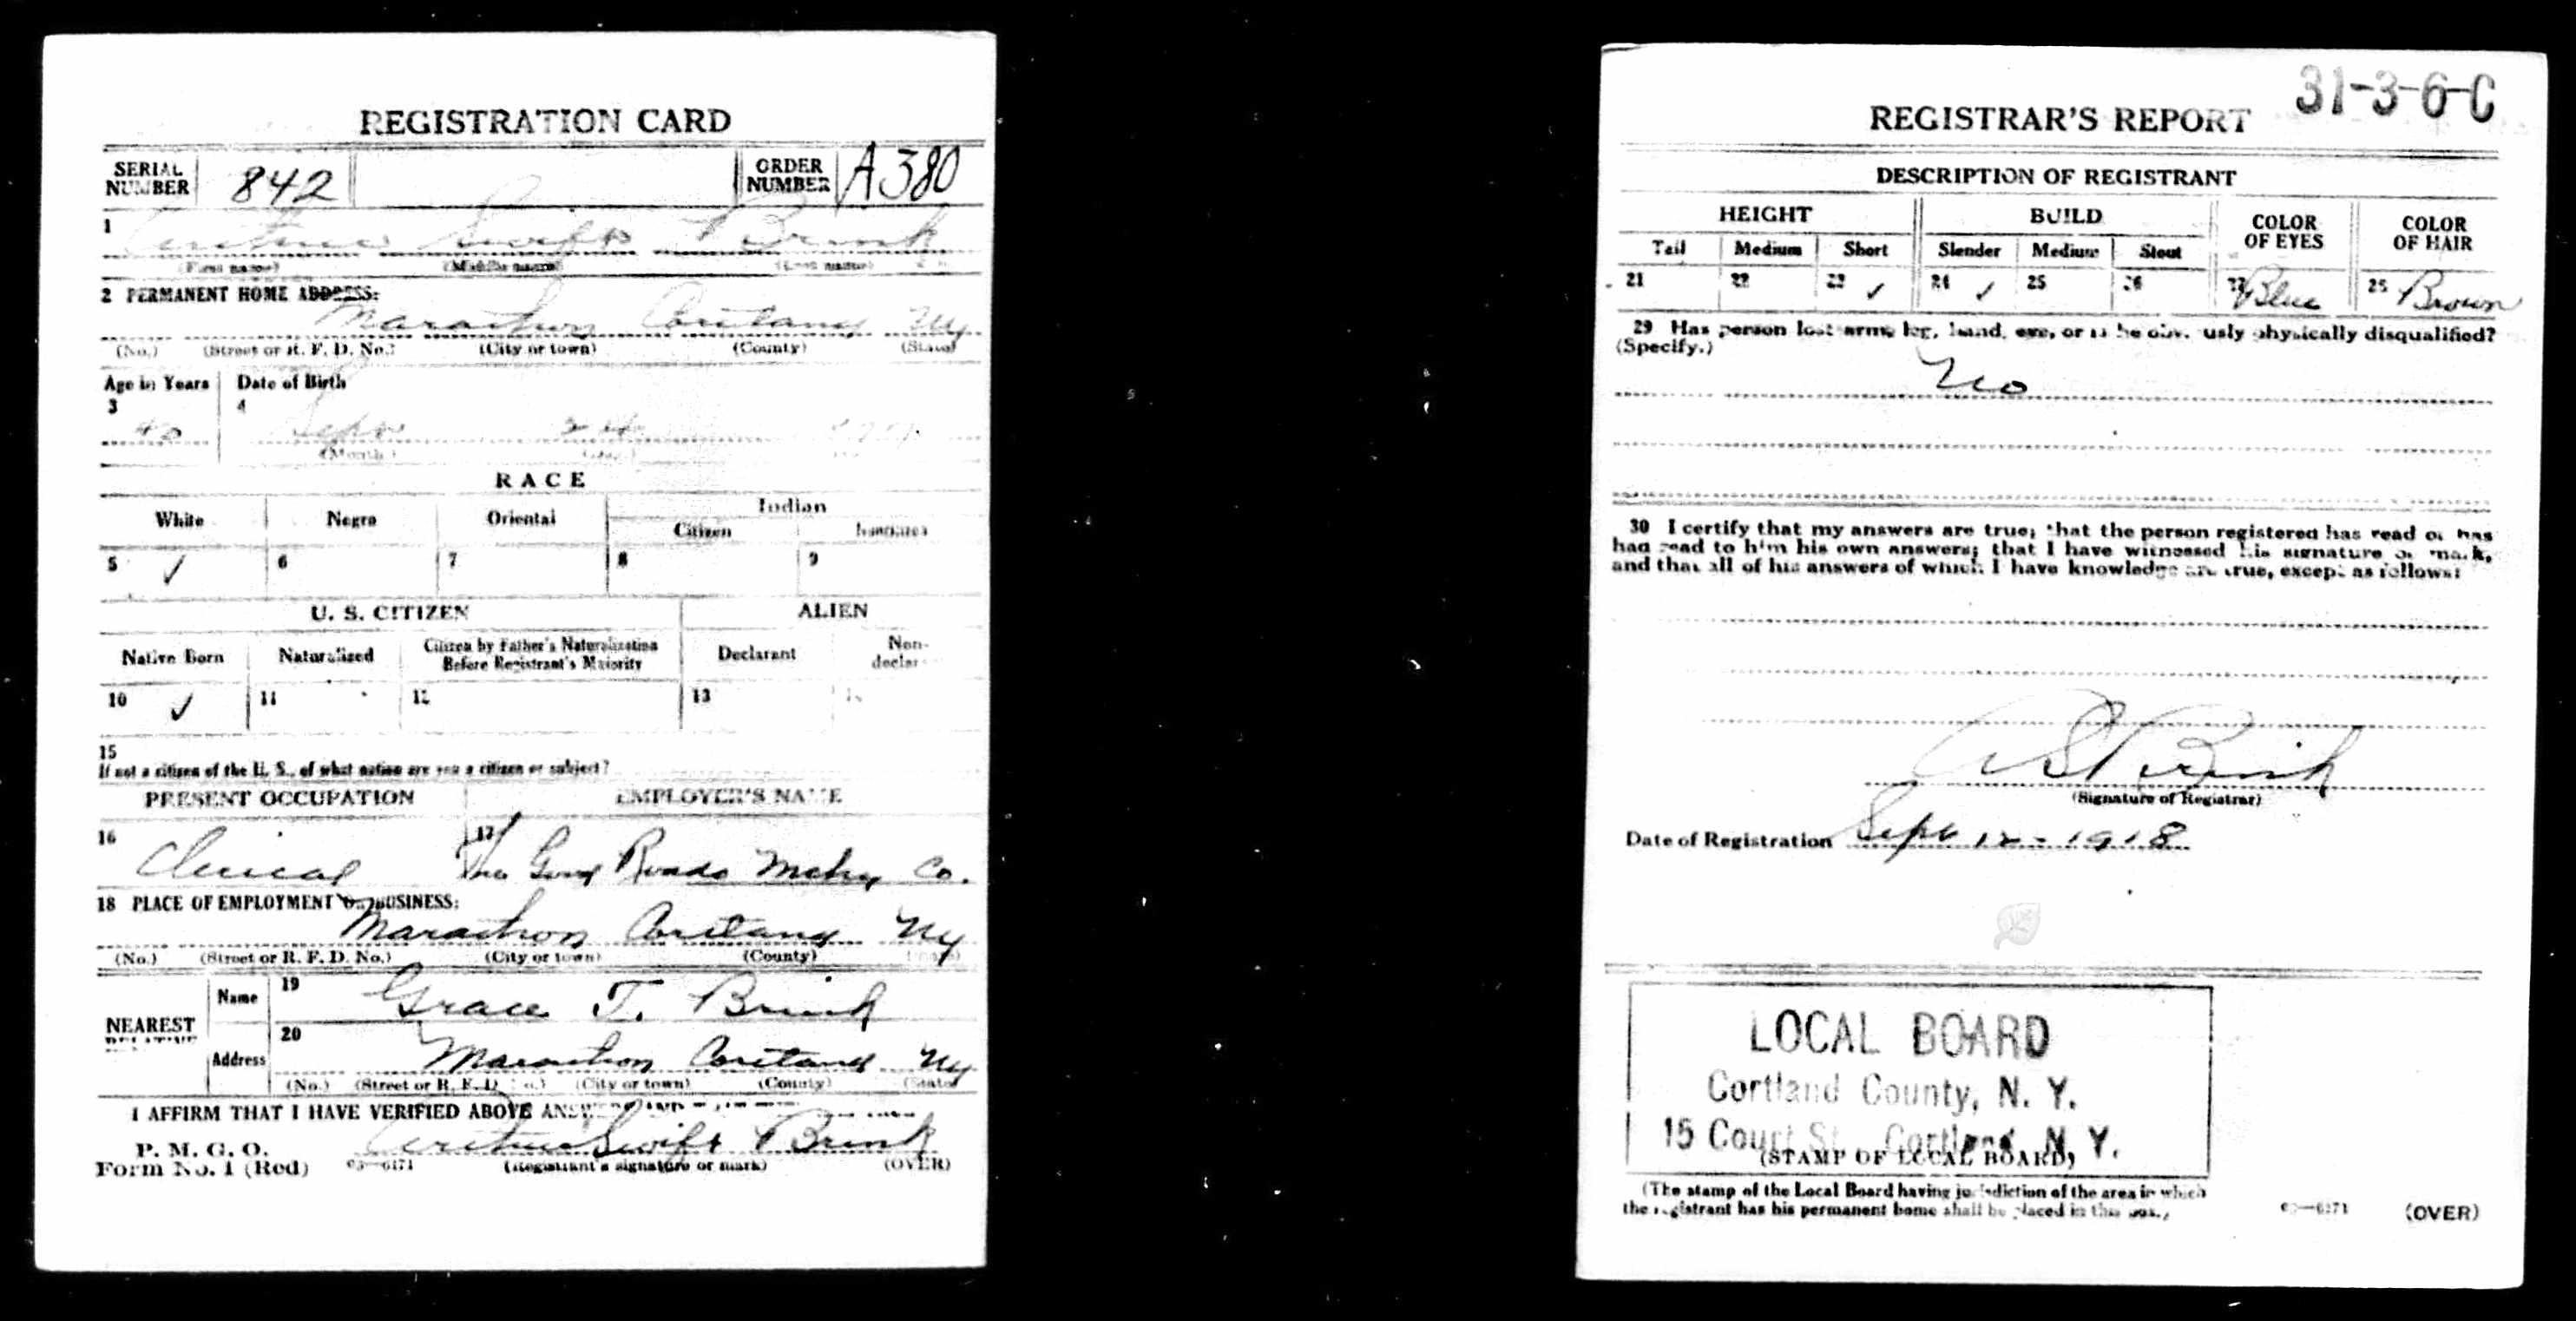 REGISTRATION CARD
SERIAL NUMBER 842 ORDER NUMBER A380
1 Swift Brink
(First name) (Middle name) (Last name)
2 PERMANENT HOME ADDRESS:
Marathon Cortland NY
(No.) (Street or R. F. D. No.) (City or town) (County) (State)
Age in Years Date of Birth
3 4
40 Sept 24
(Month.) (Day.)
RACE
White Negro Oriental Indian
Citizen
5 ✓ 6 7 8 9
U. S. CITIZEN ALIEN
Native Born Naturalized Citizen by Father's Naturalization Before Registrant's Majority Declarant Non-
10 ✓ 11 12 13
15
If not a citizen of the U. S., of what nation are you a citizen or subject?
PRESENT OCCUPATION EMPLOYER'S NAME
16 Clerical 17 The Good Roads Mchy Co.
18 PLACE OF EMPLOYMENT OR BUSINESS:
Marathon Cortland NY
(No.) (Street or R. F. D. No.) (City or town) (County)
NEAREST RELATIVE
Name 19 Grace T. Brink
Address 20 Marathon Cortland NY
(No.) (Street or R. F. D. No.) (City or town) (County) (State)
I AFFIRM THAT I HAVE VERIFIED ABOVE
P. M. G. O.
Form No. 1 (Red) 03—6171 Swift Brink
(Registrant's signature or mark) (OVER)
31-3-6-C
REGISTRAR'S REPORT
DESCRIPTION OF REGISTRANT
HEIGHT BUILD COLOR OF EYES COLOR OF HAIR
Tall Medium Short Slender Medium Stout
21 22 23 ✓ 24 ✓ 25 26 27 Blue 28 Brown
29 Has person lost arm, leg, hand, eye, or is he obviously physically disqualified?
(Specify.)
No
30 I certify that my answers are true; that the person registered has read or has
had read to him his own answers; that I have witnessed his signature or mark,
and that all of his answers of which I have knowledge are true, except as follows:
A S Brink
(Signature of Registrar)
Date of Registration Sept 12 - 1918
LOCAL BOARD
Cortland County, N. Y.
15 Court St., Cortland, N. Y.
(STAMP OF LOCAL BOARD)
(The stamp of the Local Board having jurisdiction of the area in which
the registrant has his permanent home shall be placed in this box.)
03—6171 (OVER)